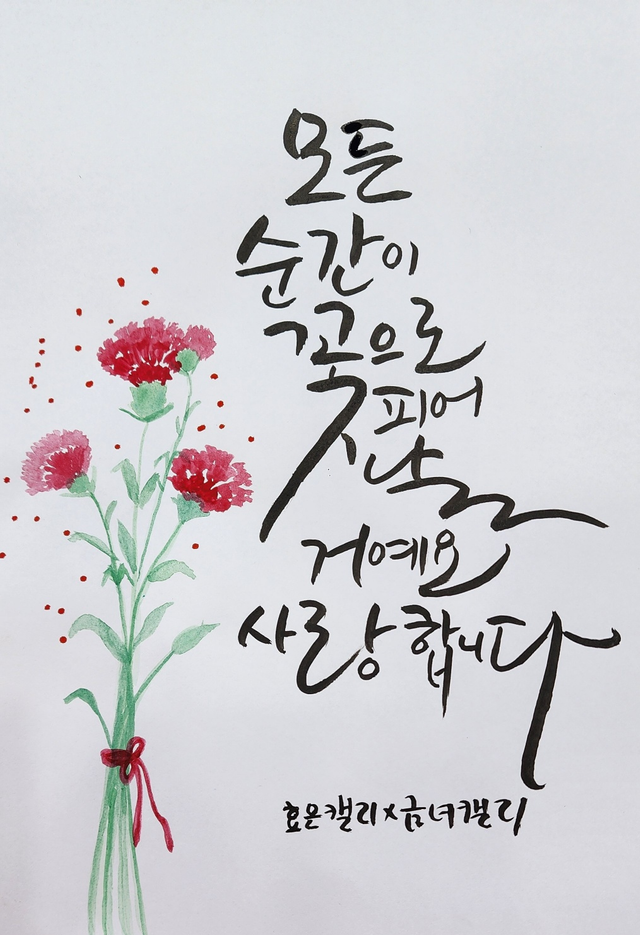 모든
순간이
꽃으로
피어
날
거예요
사랑합니다
효은캘리x금녀캘리